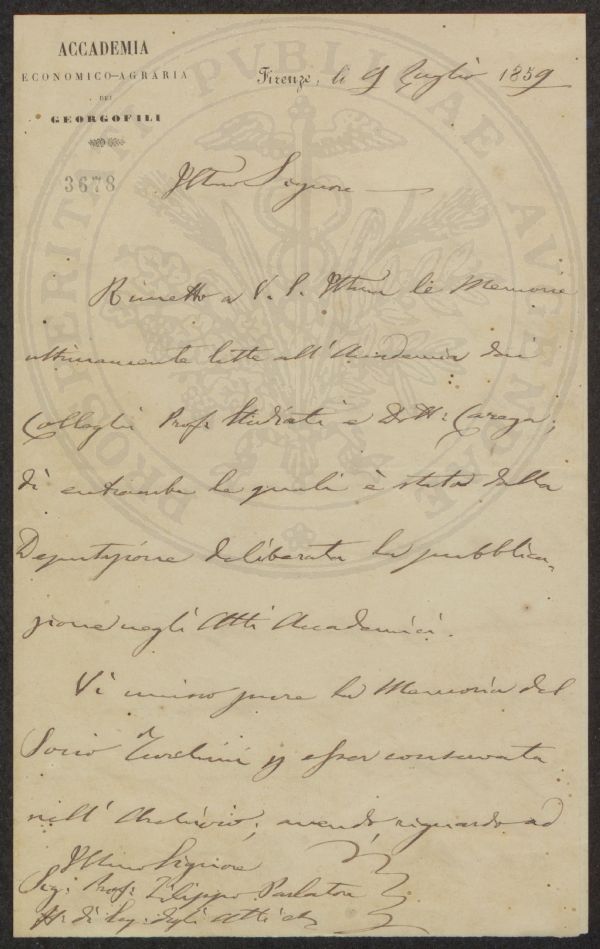 ACCADEMIA
ECONOMICO-AGRARIA
DEI
GEORGOFILI
3678
Firenze, li 9 Luglio 1859
Illmo Signore
Rimetto a V. S. Illma le Memorie
ultimamente lette all'Accademia dai
Colleghi Profr. Studiati e Dott: Carega;
di entrambe le quali è stata dalla
Deputazione deliberata la pubblica-
zione negli Atti Accademici.
Vi unisco pure la Memoria del
Socio esser conservata
nell'Archivio; avendo riguardo ad
Illmo Signore
Sig: Prof: Filippo Parlatore
degli Atti
PROSPERITATI PVBLICAE AVGENDAE